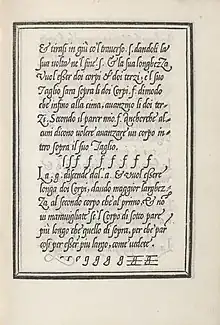 & tirasi in giù co'l traverso .s. dandoli la
sua volta ne'l fine .s. & la sua longhezza
vuol esser doi corpi & doi terzi, e'l suo
Taglio sara sopra li doi Corpi. f. di modo
che insino alla cima, avanzino li doi ter
zi. Secondo il parer mio. f. anchorche al-
cuni divono volere avanzare un corpo in
tro sopra il suo Taglio.
f f f f f f f f f
La .g. discende dal .a. & vuol essere
longa doi corpi, dando maggior larghez
Za, al secondo corpo che al primo, & nō
vi maravigliate se'l Corpo di sotto pare
più longo che quello di sopra, per che par
così per esser più largo, come vedete.
g g g g